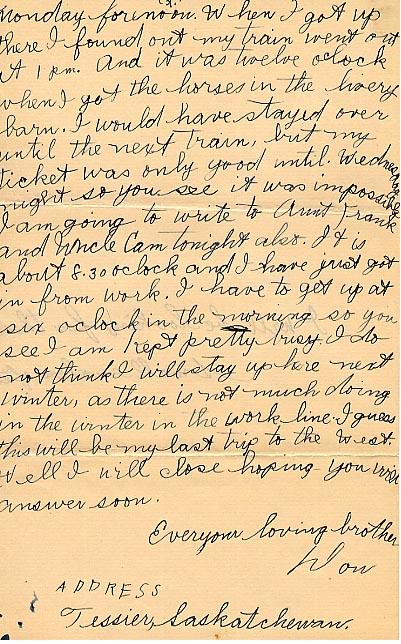 Monday forenoon. When I got up
there I found out my train went out
at 1 pm. And it was twelve oclock
when I got the horses in the livery
barn. I would have stayed over
until the next train, but my
ticket was only good until Wednesday
night so you see it was impossible
I am going to write to Aunt Frank
and Uncle Cam tonight also. It is
about 8.30 oclock and I have just got
in from work. I have to get up at
six oclock in the morning so you
see I am kept pretty busy. I do
not think I will stay up here next
winter, as there is not much doing
in the winter in the work line. I guess
this will be my last trip to the West.
Well I will close hoping you will
answer soon.
Everyour loving brother
Don
ADDRESS
Tessier, Saskatchewan.